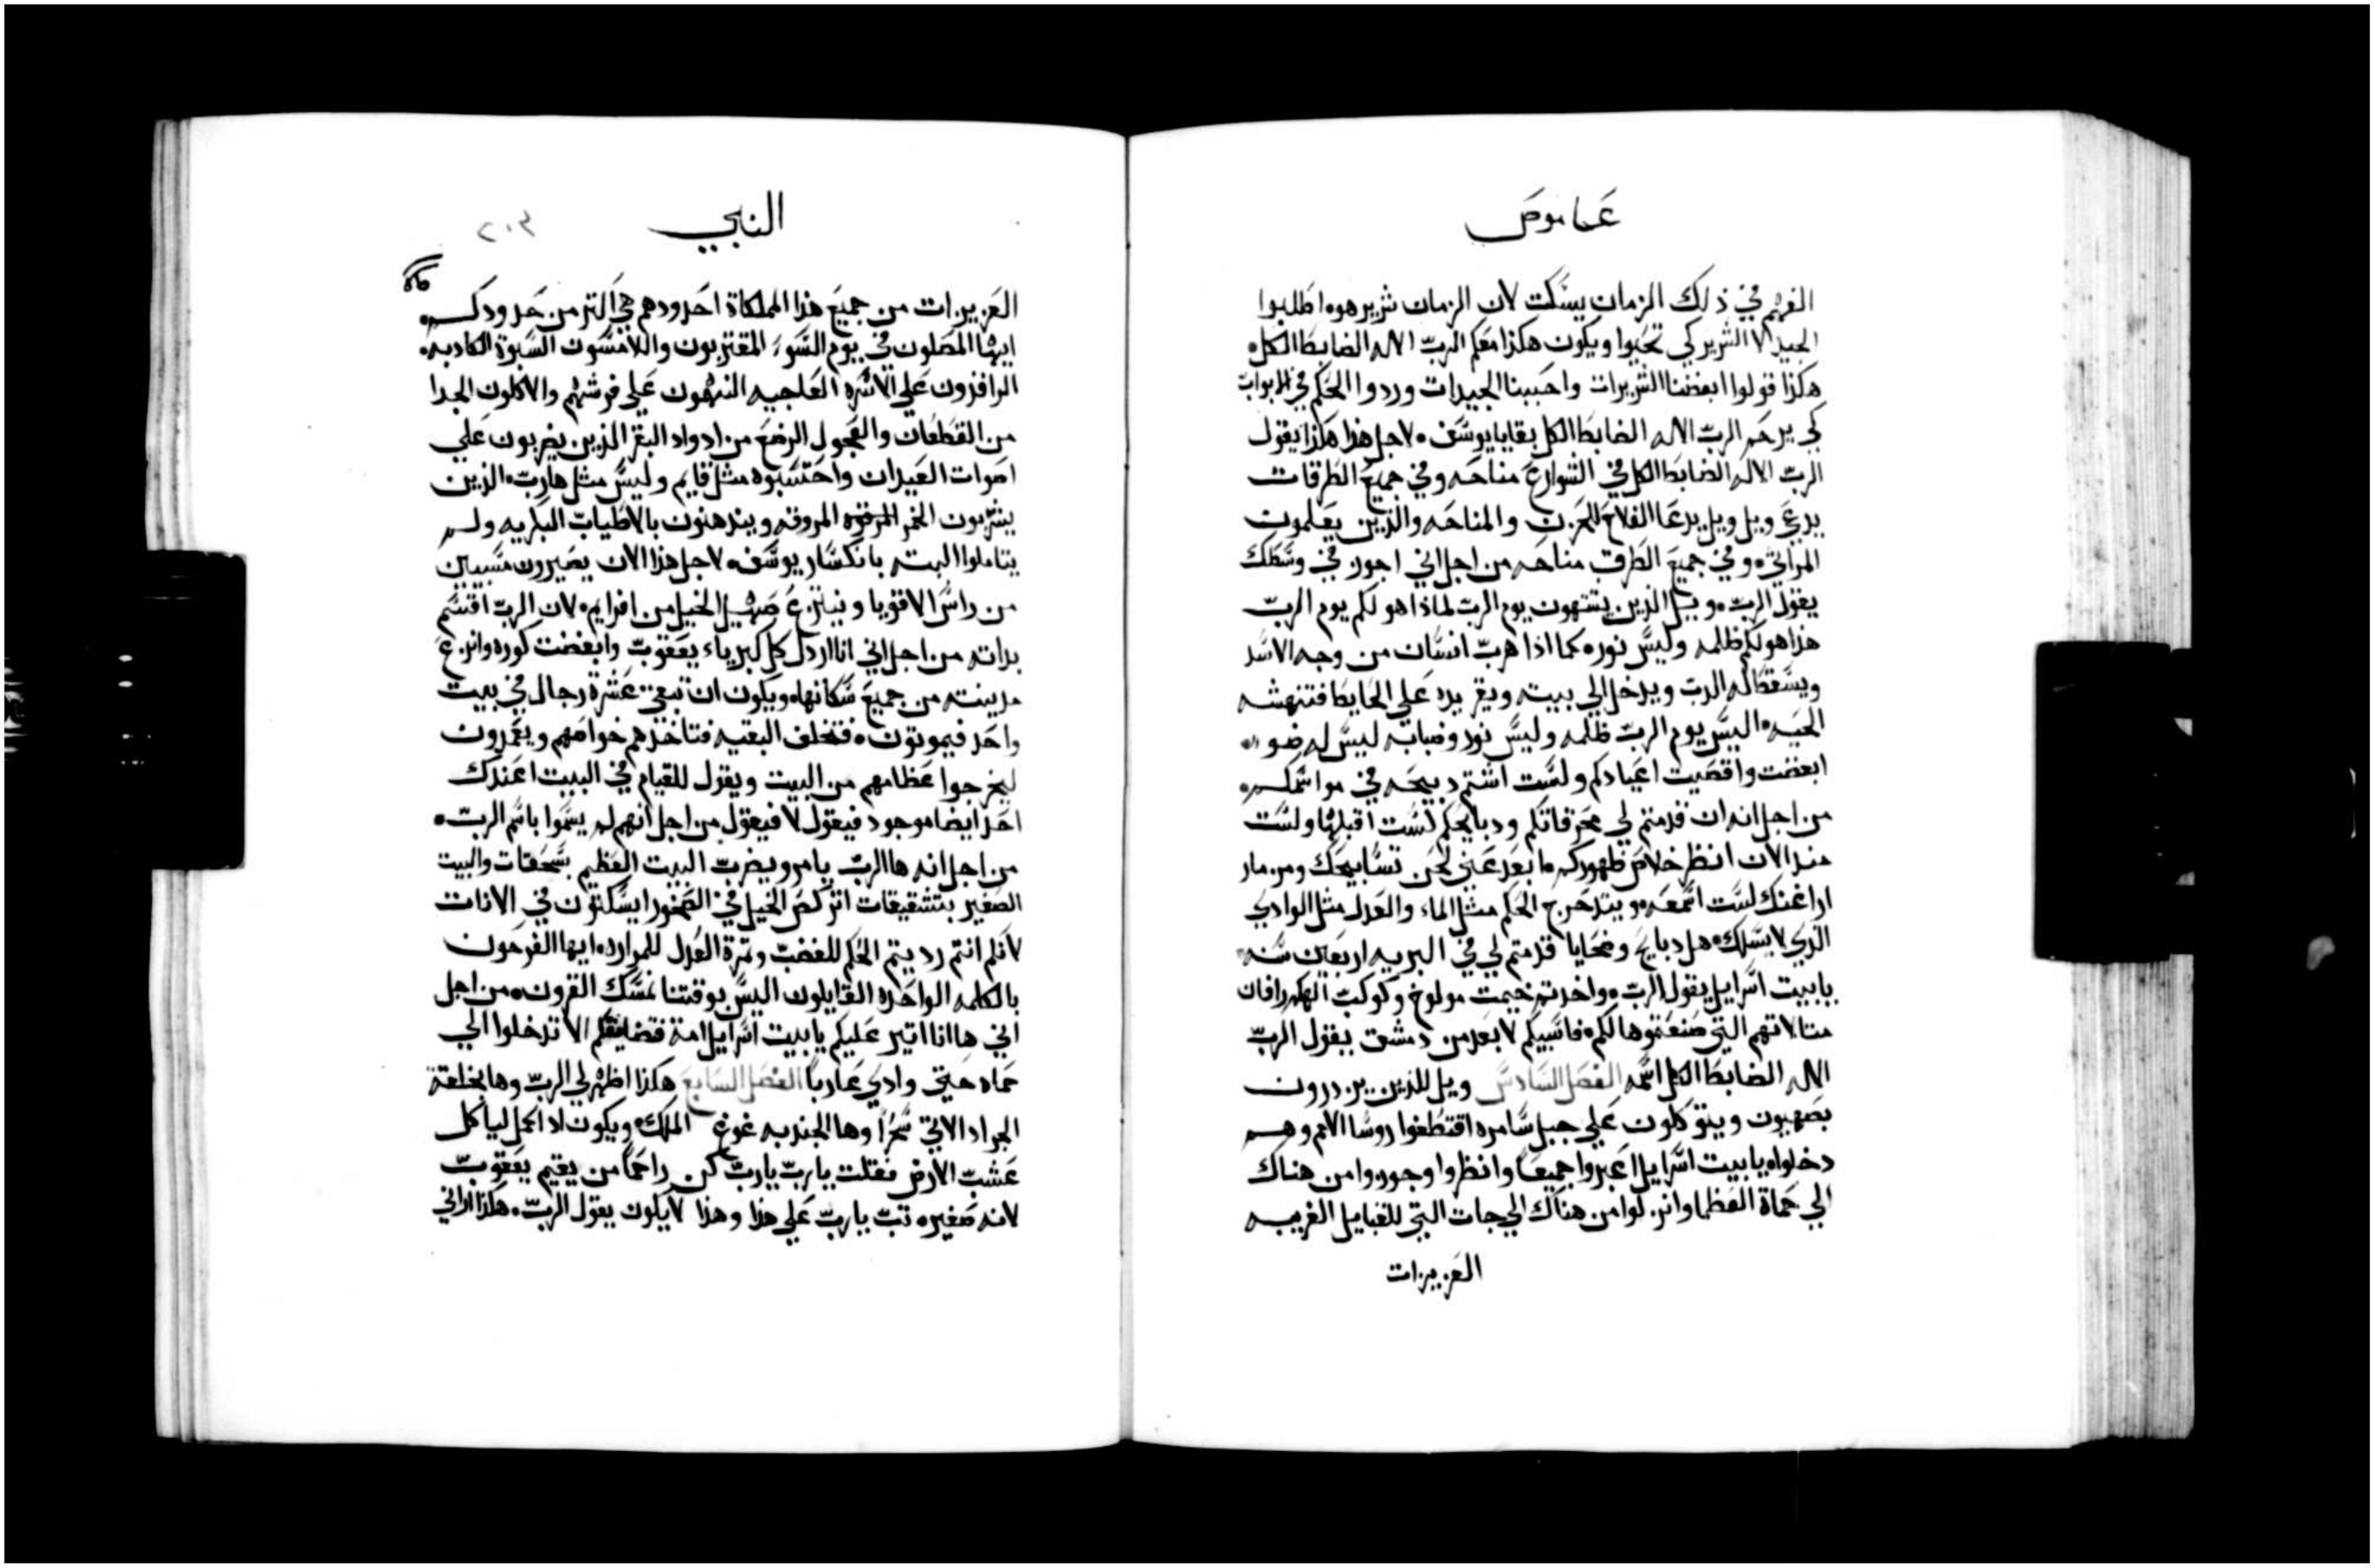 عاموص
الفهم في ذلك الزمان يسكت لان الزمان شرير هوه اطلبوا
الجيد لا الشرير كي تحيوا ويكون هكذا معكم الرب الاله الضابط الكل
هكذا قولوا ابغضنا الشريرات واحببنا الجيدات وردوا الحكم في الابواب
كي يرحم الرب الاله الضابط الكل بقايا يوسف لاجل هذا هكذا يقول
الرب الاله الضابط الكل في الشوارع مناحه وفي جميع الطرقات
يدعي ويل ويل يدعا الفلاح للحزن والمناحه والذين يعلمون
المراثي وفي جميع الطرق مناحه من اجل اني اجوز في وسطك
يقول الرب ويل الذين يشتهون يوم الرب لماذا هو لكم يوم الرب
هذا هو لكم ظلمه وليس نوره كما اذا هرب انسان من وجه الاسد
ويسقط له الدب ويدخل الي بيته ويفر يده علي الحايط فتنهشه
الحيه اليس يوم الرب ظلمه وليس نور وضبابه ليس له ضو
ابغضت واقصيت اعيادكم ولست اشتم دبيحه في مواسمكم
من اجل انه ان قدمتم لي محرقاتكم ودبايحكم لست اقبلها ولست
منذ الان انظر خلاص ظهوركم ابعد عني لحن تسابيحك ومزمار
اراغنك لست اسمعه ويتدحرج الحكم مثل الماء والعدل مثل الوادي
الذي لا يسلك هل دبايح وضحايا قدمتم لي في البريه اربعين سنه
يا بيت اسرايل يقول الرب واخدتم خيمت مولوخ وكوكب الهكم رافان
متالاتهم التي صنعتموها لكم فاسبيكم لابعد من دمشق يقول الرب
الاله الضابط الكل اسمه الفصل السادس ويل للذين يزدرون
بصهيون ويتوكلون علي جبل سامره اقتطفوا روسا الامم وهم
دخلوا يا بيت اسرايل اعبروا جميعا وانظروا وجوزوا من هناك
الي حماة العظما وانزلوا من هناك الي جات التي للقبايل الغريبه
العزيزات
النبي
٢٠٣
العزيزات من جميع هذا المملكاة احدودهم هي اكتر من حدودكم
ايها المصلون في يوم السوء المقتربون واللامسون السبوة الكادبه
الراقدون علي الاسره العاجيه النهمون علي فرشهم والاكلون الجدا
من القطعان والعجول الرضع من ادواد البقر الذين يضربون علي
اصوات العيدان واحتسبوه مثل قايم وليس مثل هارب الذين
يشربون الخمر المروقه ويندهنون بالاطياب البكريه ولم
يتاملوا البته بانكسار يوسف لاجل هذا الان يصيرون مسبيين
من راس الاقويا وينتزع صهيل الخيل من افرايم لان الرب اقسم
بداته من اجل اني انا اردل كل كبرياء يعقوب وابغضت كوره وانزع
مدينته من جميع سكانها ويكون ان تبقي عشرة رجال في بيت
واحد فيموتون فتخلف البقيه فتاخذهم خواصهم ويغمدون
ليخرجوا عظامهم من البيت ويقول للقيام في البيت اعندك
احد ايضا موجود فيقول لا فيقول من اجل انهم لم يسموا باسم الرب
من اجل انه ها الرب يامر ويضرب البيت العظيم بسحقات والبيت
الصغير بتشقيقات اتركض الخيل في الصخور ايسكتون في الانات
لانكم انتم رديتم الحكم للغضب وتمرة العدل للمراره ايها الفرحون
بالكلمه الواحده القايلون اليس بوقتنا نمسك القرون من اجل
اني ها انا اتير عليكم يا بيت اسرايل امة فتضايقكم الا تدخلوا الي
حماه حتي وادي عاربا الفصل السابع هكذا اظهر لي الرب وها بخلقة
الجراد الاتي سحرا وها الجندبه غوغ الملك ويكون ادا اكمل لياكل
عشب الارض فقلت يا رب يا رب كن راحما من يقيم يعقوب
لانه صغيره تب يا رب علي هذا وهذا لا يكون يقول الرب هكذا اراني